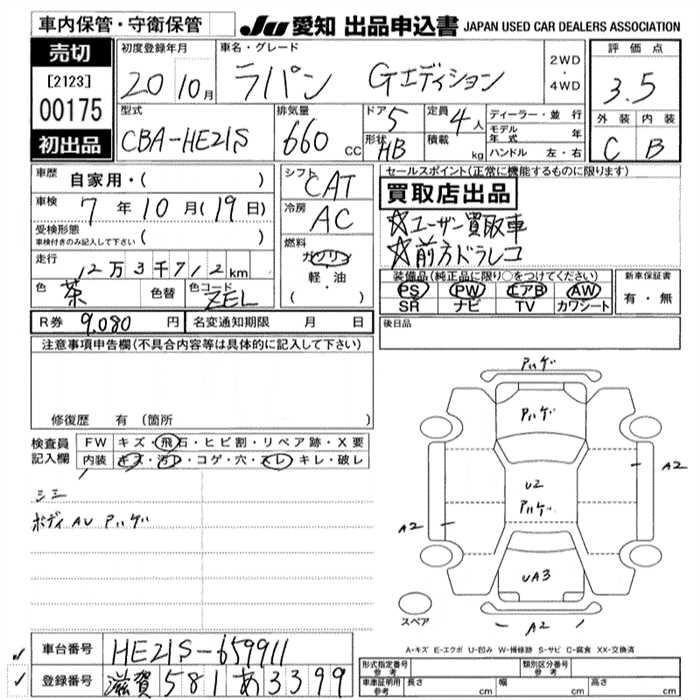 車内保管・守衛保管
JU 愛知 出品申込書 JAPAN USED CAR DEALERS ASSOCIATION
売切
[2123]
00175
初出品
初度登録年月
20 10月
車名・グレード
ラパン Gエディション
2WD
・
4WD
評価点
3.5
型式
CBA-HE21S
排気量
660 cc
ドア 5
形状 HB
定員 4人
積載 kg
ディーラー・並行
モデル年式 年
ハンドル 左・右
外装 内装
C B
車歴 自家用・( )
車検 7年10月(19日)
受検形態
車検付きのみ記入して下さい ( )
走行 12万3千712km
色 茶 色替 色コード ZEL
シフト CAT
冷房 AC
燃料
ガソリン
軽・油
( )
セールスポイント(正常に機能するものに限ります)
買取店出品
☆ユーザー買取車
☆前方ドラレコ
装備品(純正品に限り○をつけてください)
PS PW エアB AW
SR ナビ TV カワシート
新車保証書
有・無
R券 9,080円 名変通知期限 月 日
後日品
注意事項申告欄(不具合内容等は具体的に記入して下さい)
修復歴 有 (箇所 )
検査員記入欄
FW キズ・飛石・ヒビ割・リペア跡・X要
内装 キズ・汚レ・コゲ・穴・スレ・キレ・破レ
シミ
ボディ AU アハゲ
アハゲ
アハゲ
U2
アハゲ
A2
A2
UA3
A2
スペア
A-キズ E-エクボ U-凹み W-補修跡 S-サビ C-腐食 XX-交換済
車台番号 HE21S-659911
登録番号 滋賀 581 あ 3399
形式指定番号 参考
類別区分番号 参考
車庫証明用 参考 長さ cm 幅 cm 高さ cm